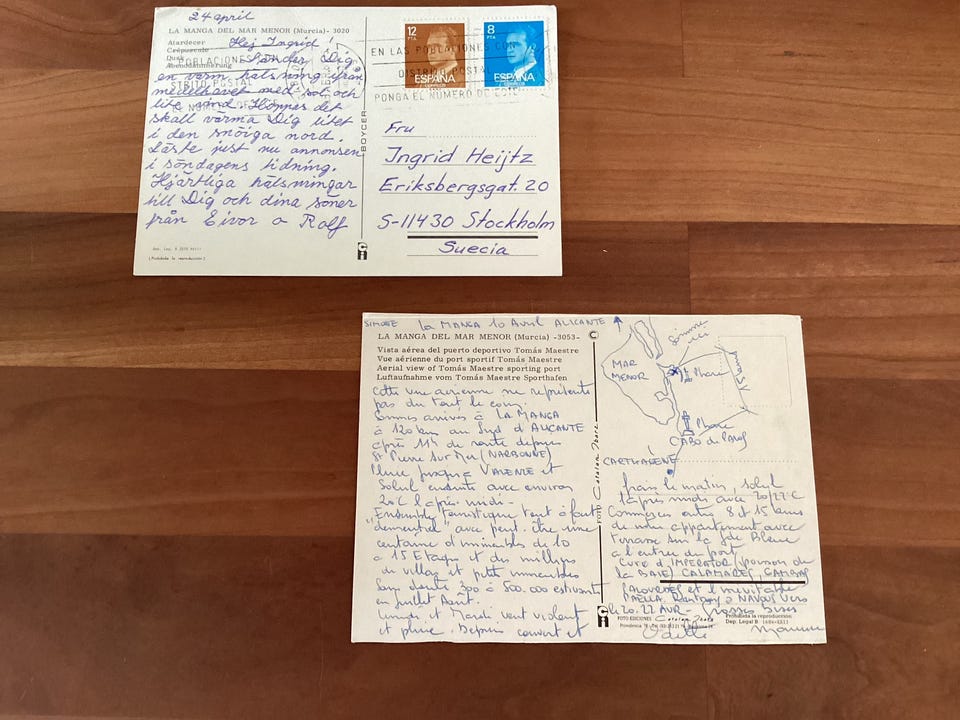 24 april
LA MANGA DEL MAR MENOR (Murcia) - 3020
Atardecer
Crépuscule
Dusk
Abenddämmerung
Hej Ingrid
Sänder Dig
en varm hälsning ifrån
medelhavet med sol och
lite vind. Hoppas det
skall värma Dig litet
i den snöiga nord.
Läste just nu annonsen
i söndagens tidning.
Hjärtliga hälsningar
till Dig och dina söner
från Eivor o Rolf
(Prohibida la reproducción)
BOYCER
12
PTA
ESPAÑA
CORREOS
8
PTA
ESPAÑA
CORREOS
EN LAS POBLACIONES CON
DISTRITO POSTAL
PONGA EL NUMERO DE ESTE
Fru
Ingrid Heijtz
Eriksbergsgat. 20
S-11430 Stockholm
Suecia
La MANGA 10 Avril ALICANTE
LA MANGA DEL MAR MENOR (Murcia) -3053-
Vista aérea del puerto deportivo Tomás Maestre
Vue aérienne du port sportif Tomás Maestre
Aerial view of Tomás Maestre sporting port
Luftaufnahme vom Tomás Maestre Sporthafen
Cette vue aerienne ne représente
pas du tout le coin.
Sommes arrivés à LA MANGA
à 120 kms au Sud d'ALICANTE
après 11h de route depuis
St Pierre Sur Mer (NARBONNE)
Pluie jusqu'à VALENCE et
Soleil ensuite avec environ
20°C l'après-midi -
"Ensemble touristique tout à fait
démentiel" avec peut être une
centaine d'immeubles de 10
à 15 Etages et des milliers
de villas et petits immeubles
Sans doute 300 à 500.000 estivants
en Juillet Août.
Lundi et Mardi vent violent
et pluie. Depuis couvert et
FOTO Catalan Ibarz
MAR
MENOR
Phare
Phare
CABO de PALOS
CARTHAGÈNE
frais le matin, soleil
l'après midi avec 20/22°C
Commerces entre 8 et 15 kms
de notre appartement avec
terrasse sur la gde Bleue
à l'entrée du port
Cure d'IMPERATOR (poisson de
la BAIE) CALAMARES, GAMBAS
PALOURDES et l'inévitable
PAELLA. Rentrons à NANOUS vers
le 20.22 AVR - Grosses bises
Odette
FOTO EDICIONES Catalan Ibarz
Prohibida la reproducción